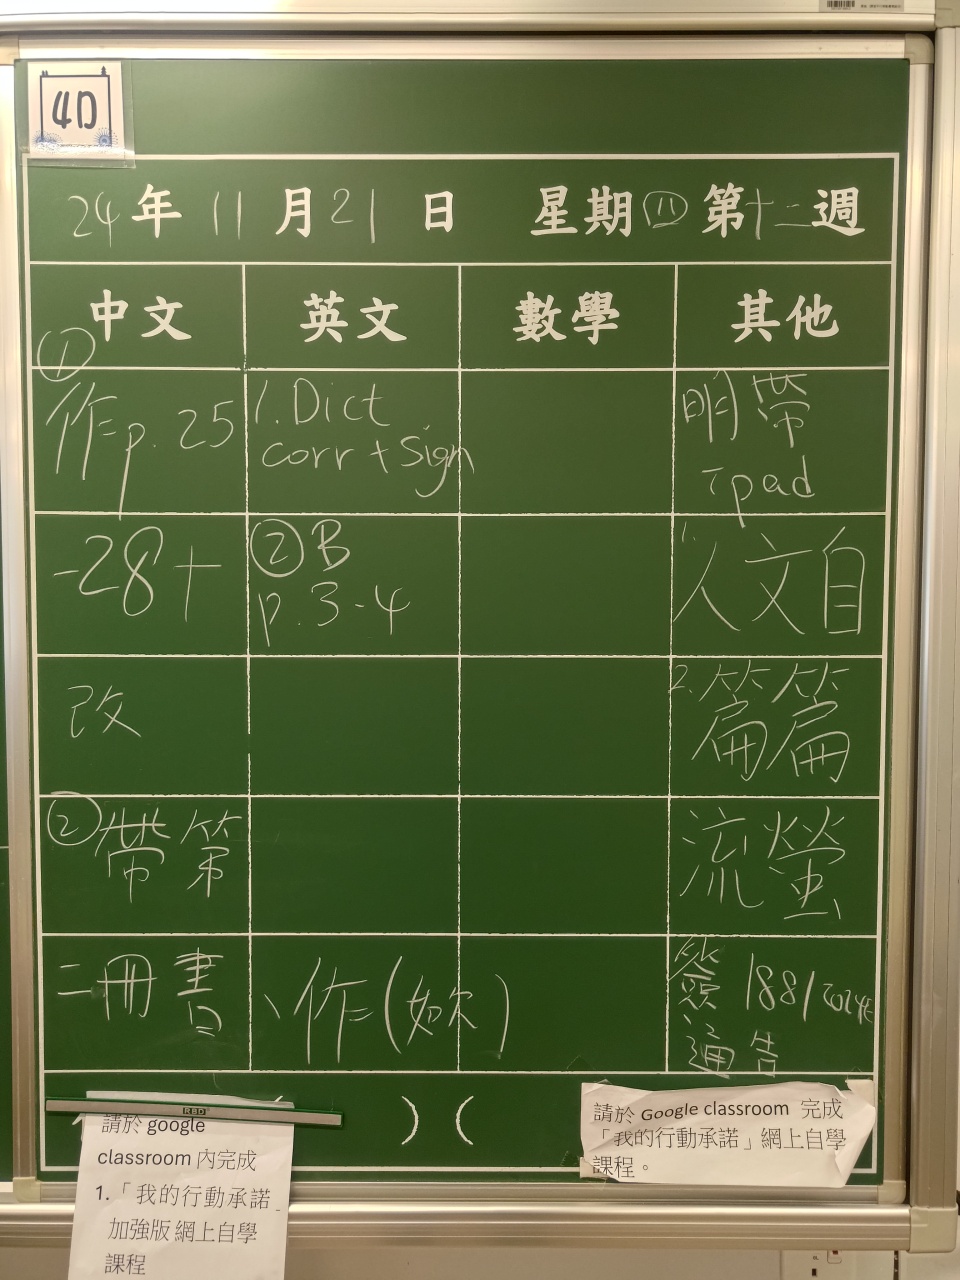 4D
24年11月21日 星期四第十二週
中文 英文 數學 其他
①
作p.25
-28+
改
②帶第
二冊書
1.Dict
corr+Sign
②B
p.3-4
、作(
)
明帶
ipad
1.人文自
2.篇篇
流螢
簽188/2024E
通告
)(
請於 google
classroom 內完成
1.「我的行動承諾」
加強版 網上自學
課程
請於 Google classroom 完成
「我的行動承諾」網上自學
課程。
RBD